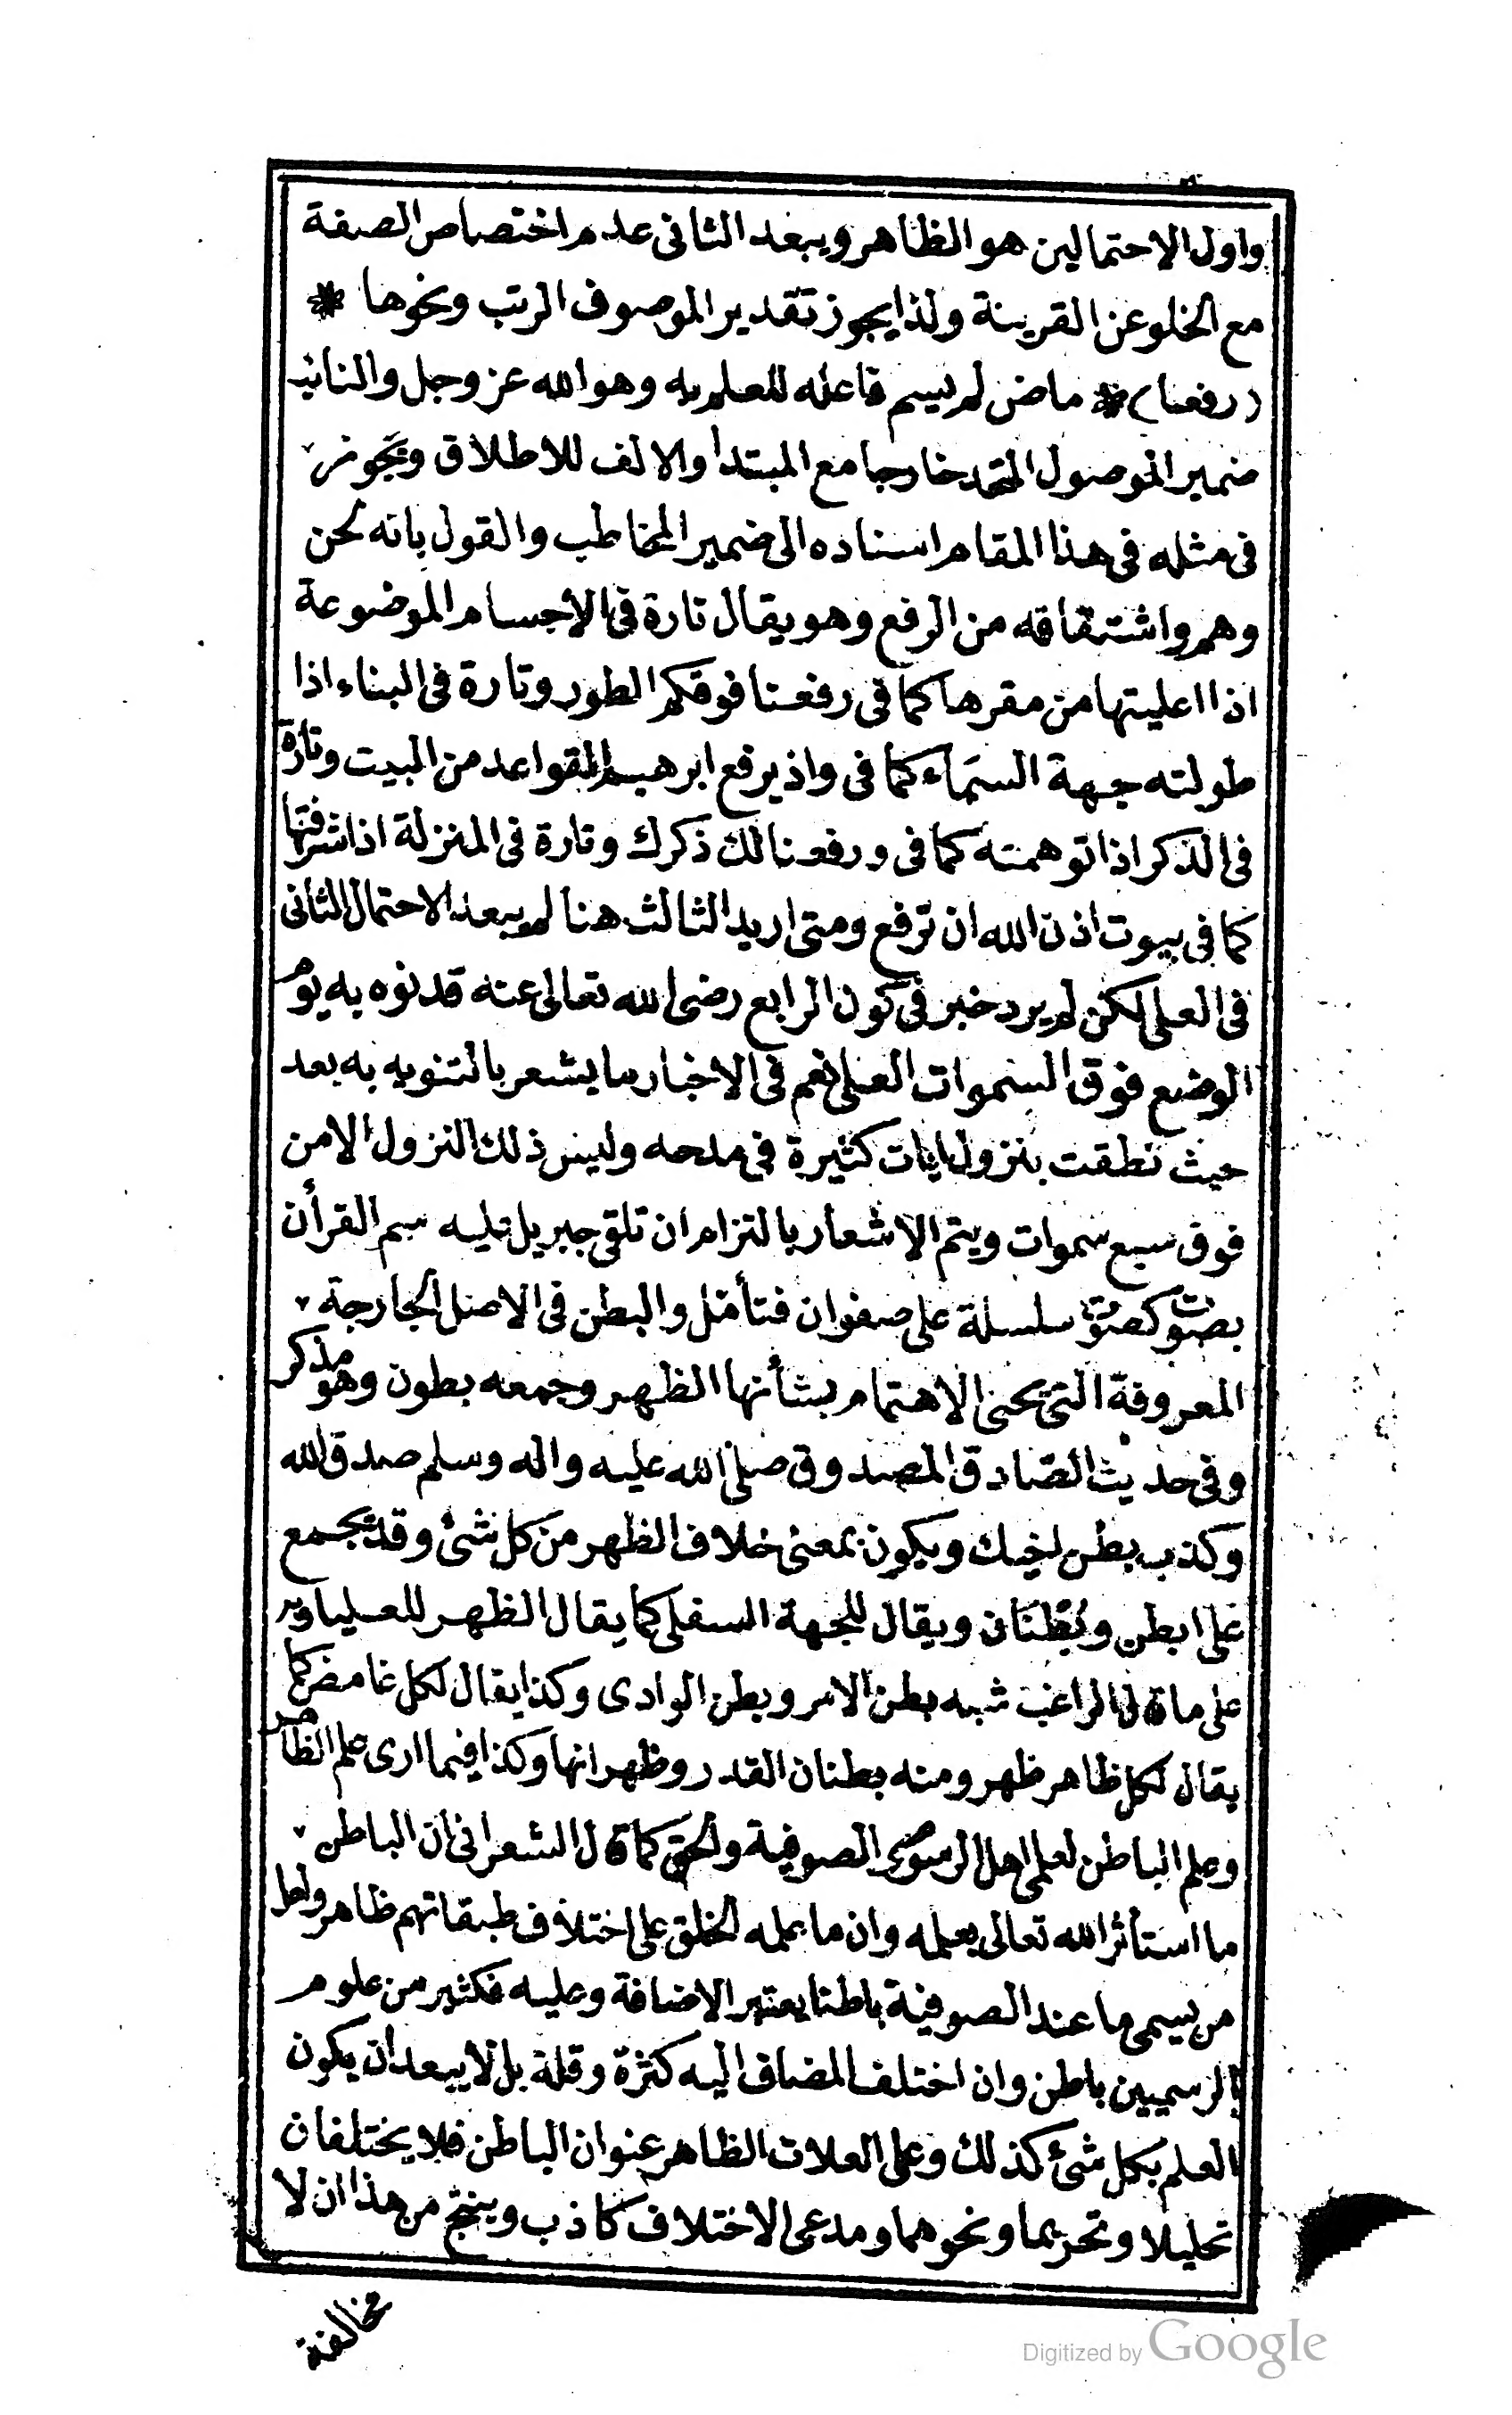 واول الاحتمالين هو الظاهر ويبعد الثانى عدم اختصاص الصفة
مع الخلو عن القرينة ولذا يجوز تقدير الموصوف الرتب ونحوها *
(رفعا) * ماض لم يسم فاعله للعلم به وهو الله عز وجل والنائب
ضمير الموصول المتحد خارجا مع المبتدا والالف للاطلاق وتجويز
فى مثله فى هذا المقام اسناده الى ضمير المخاطب والقول بانه لحن
وهم واشتقاقه من الرفع وهو يقال تارة فى الاجسام الموضوعة
اذا اعليتها من مقرها كما فى رفعنا فوقكم الطور وتارة فى البناء اذا
طولته جهة السماء كما فى واذ يرفع ابرهيم القواعد من البيت وتارة
فى الذكر اذا توهمته كما فى ورفعنا لك ذكرك وتارة فى المنزلة اذا شرفتها
كما فى بيوت اذن الله ان ترفع ومتى اريد الثالث هنا لم يبعد الاحتمال الثانى
فى العلى لكن لم يرد خبر فى كون الرابع رضى الله تعالى عنه قد نوه به يوم
الوضع فوق السموات العلى نعم فى الاخبار ما يشعر بالتنويه به بعد
حيث نطقت بنزول ايات كثيرة فى مدحه وليس ذلك النزول الا من
فوق سبع سموات ويتم الاشعار بالتزام ان تلقى جبريل عليه سم القرأن
بصوت كصوت سلسلة على صفوان فتأمل والبطن فى الاصل الجارحة
المعروفة التى يحنى الاهتمام بشأنها الظهر وجمعه بطون وهو مذكر
وفى حديث الصادق المصدوق صلى الله عليه واله وسلم صدق الله
وكذب بطن اخيك ويكون بمعنى خلاف الظهر من كل شئ وقد يجمع
على ابطن وبطنان ويقال للجهة السفلى كما يقال الظهر للعليا وبه
على ما قال الراغب شبه بطن الامر وبطن الوادى وكذا يقال لكل غامض كما
يقال لكل ظاهر ظهر ومنه بطنان القدر وظهرانها وكذا فيما ارى علم الظاهر
وعلم الباطن لعلمى اهل الرسوم والصوفية والحق كما قال الشعرانى ان الباطن
ما استأثر الله تعالى بعلمه وان ما يعلمه الخلق على اختلاف طبقاتهم ظاهر ولعل
من يسمى ما عند الصوفية باطنا يعتبر الاضافة وعليه فكثير من علوم
الرسميين باطن وان اختلف المضاف اليه كثرة وقلة بل لا يبعد ان يكون
العلم بكل شئ كذلك وعلى العلات الظاهر عنوان الباطن فلا يختلفان
تحليلا وتحريما ونحوهما ومدعى الاختلاف كاذب وينتج من هذا ان لا
مخالفة
Digitized by Google